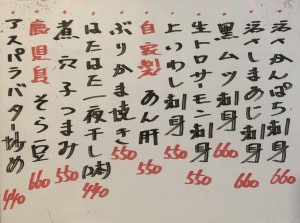 活さかんぱち刺身 660
活さしまあじ刺身 660
黒ムツ刺身 660
生トロサーモン刺身 550
上いわし刺身 550
自家製 あん肝 550
ぶりかま焼き 550
はたはた一夜干し(2本) 440
煮穴子つまみ 550
鹿児島 そら豆 660
アスパラバター炒め 440